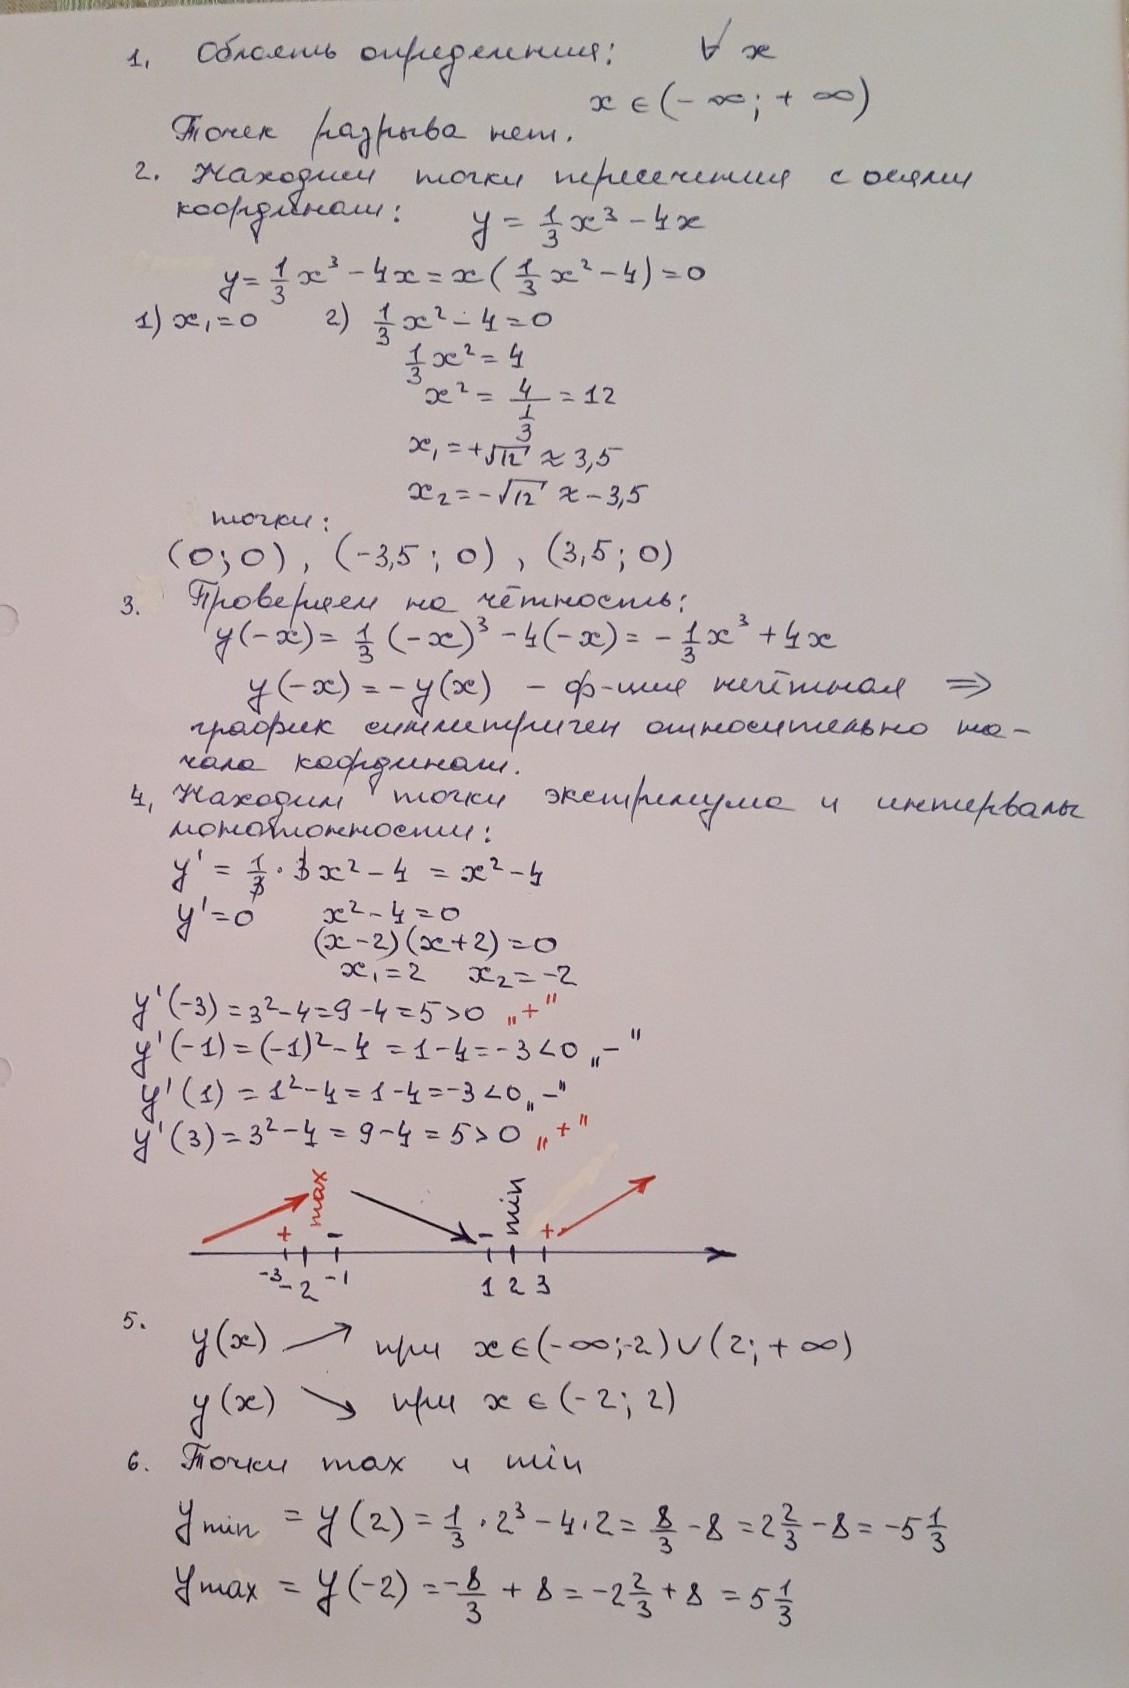 1. Область определения: ∀ x
x ∈ (-∞; +∞)
Точек разрыва нет.
2. Находим точки пересечения с осями
координат: y = 1/3 x³ - 4x
y = 1/3 x³ - 4x = x (1/3 x² - 4) = 0
1) x₁ = 0 2) 1/3 x² - 4 = 0
1/3 x² = 4
x² = 4/(1/3) = 12
x₁ = +√12 ≈ 3,5
x₂ = -√12 ≈ -3,5
точки:
(0; 0), (-3,5; 0), (3,5; 0)
3. Проверяем на чётность:
y(-x) = 1/3 (-x)³ - 4(-x) = -1/3 x³ + 4x
y(-x) = -y(x) - ф-ция нечётная ⇒
график симметричен относительно на-
чала координат.
4. Находим точки экстремума и интервалы
монотонности:
y' = 1/3 · 3x² - 4 = x² - 4
y' = 0 x² - 4 = 0
(x-2)(x+2) = 0
x₁ = 2 x₂ = -2
y'(-3) = 3² - 4 = 9 - 4 = 5 > 0 „+"
y'(-1) = (-1)² - 4 = 1 - 4 = -3 < 0 „-"
y'(1) = 1² - 4 = 1 - 4 = -3 < 0 „-"
y'(3) = 3² - 4 = 9 - 4 = 5 > 0 „+"
+ max - - min +
-3 -2 -1 1 2 3
5. y(x) ↗ при x ∈ (-∞; -2) ∪ (2; +∞)
y(x) ↘ при x ∈ (-2; 2)
6. Точки max и min
y min = y(2) = 1/3 · 2³ - 4·2 = 8/3 - 8 = 2 2/3 - 8 = -5 1/3
y max = y(-2) = -8/3 + 8 = -2 2/3 + 8 = 5 1/3